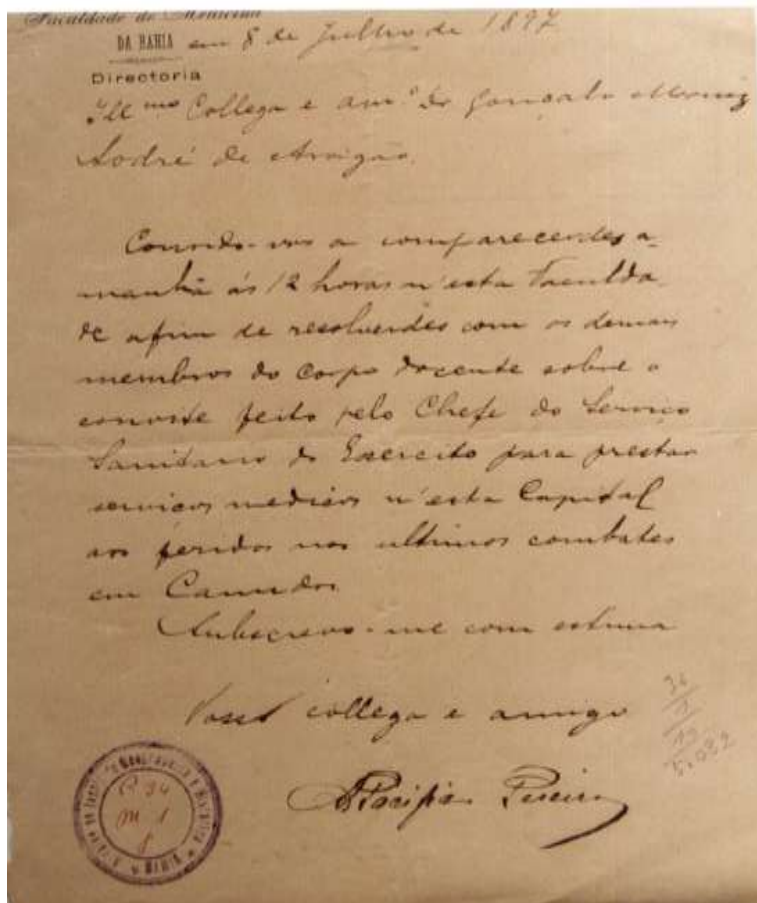 Faculdade de Medicina
DA BAHIA em 8 de Julho de 1897
Directoria
Ill mo Collega e am.º Dr Gonçalo Moniz
Sodré de Aragão.
Convido-vos a comparecerdes a-
manhã ás 12 horas n'esta Faculda-
de afim de resolverdes com os demais
membros do Corpo docente sobre o
convite feito pelo Chefe do Serviço
Sanitario do Exercito para prestar
serviços medicos n'esta Capital
aos feridos nos ultimos combates
em Canudos.
Subscrevo-me com estima
Vosso collega e amigo
A Pacifico Pereira
BAHIA